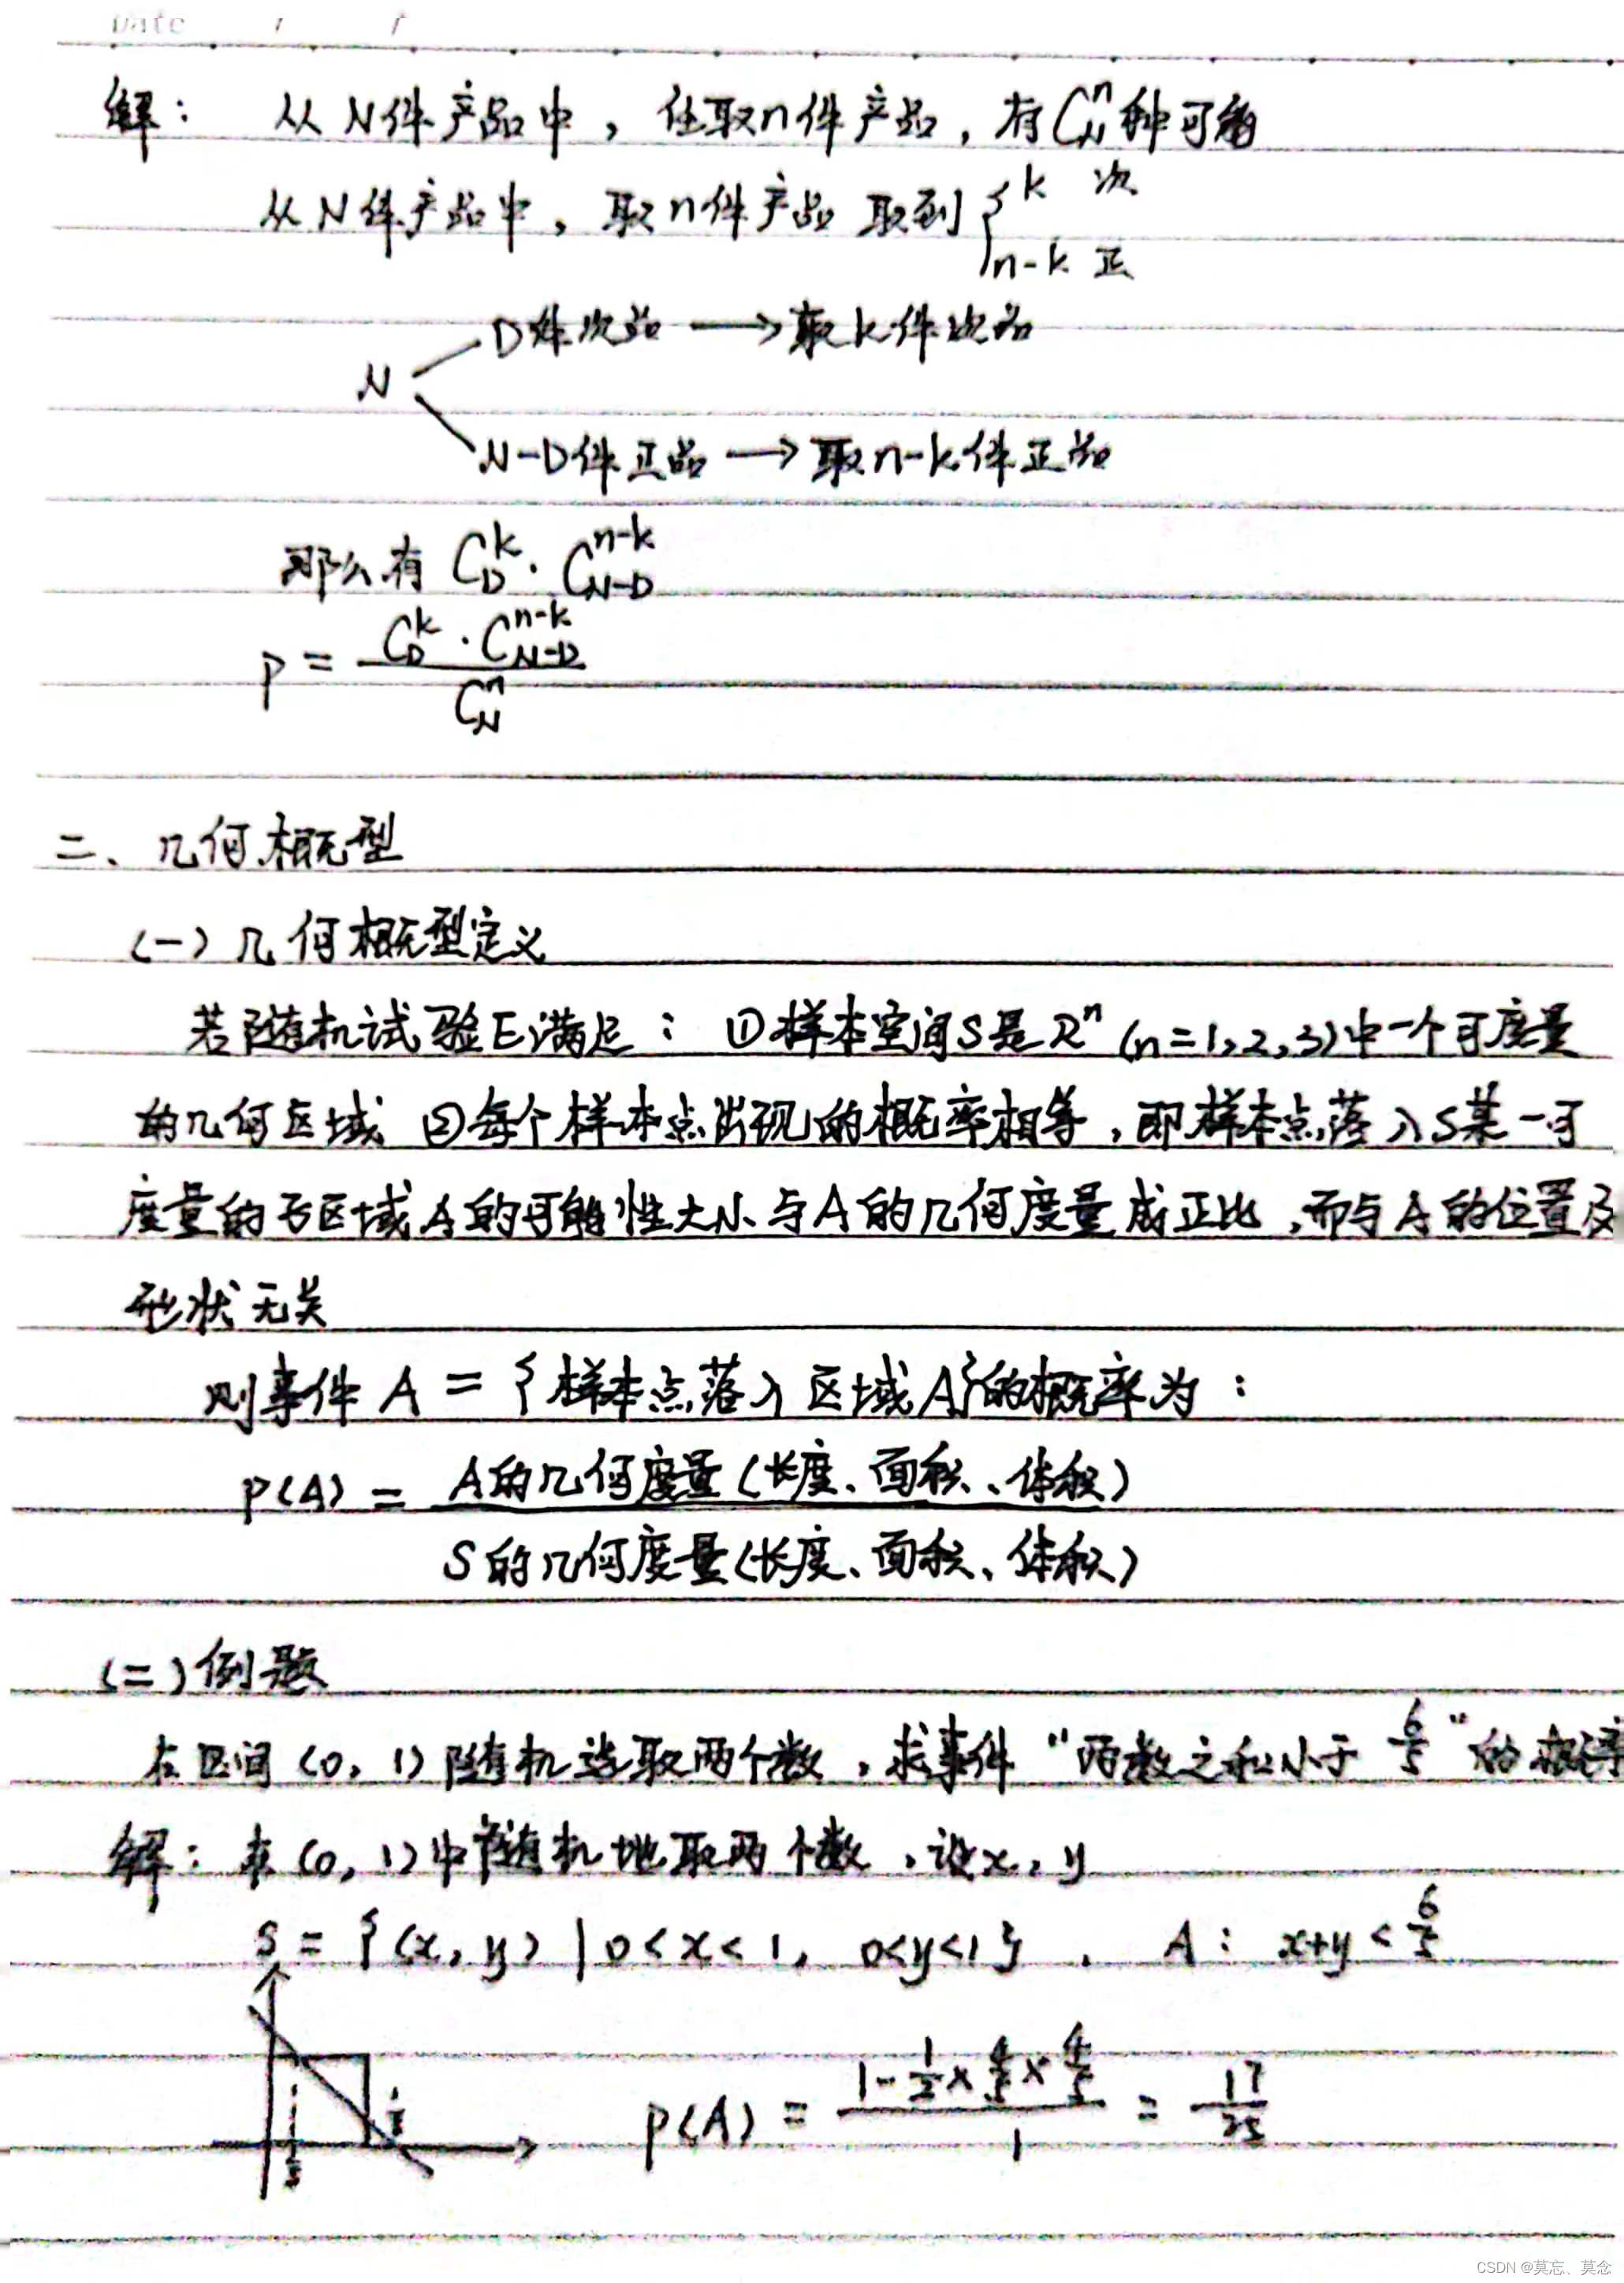 Date / /
解： 从N件产品中，任取n件产品，有C_N^n种可能
从N件产品中，取n件产品 取到{k 次
n-k 正
D件次品 → 取k件次品
N
N-D件正品 → 取n-k件正品
那么有 C_D^k · C_{N-D}^{n-k}
P = \frac{C_D^k · C_{N-D}^{n-k}}{C_N^n}
二、几何概型
(一) 几何概型定义
若随机试验E满足： ①样本空间S是R^n (n=1,2,3)中一个可度量
的几何区域 ②每个样本点出现的概率相等，即样本点落入S某一可
度量的子区域A的可能性大小与A的几何度量成正比，而与A的位置及
形状无关
则事件A = {样本点落入区域A}的概率为：
P(A) = \frac{A的几何度量(长度、面积、体积)}{S的几何度量(长度、面积、体积)}
(二)例题
在区间(0, 1)随机选取两个数，求事件“两数之和小于6/5”的概率
解：在(0, 1)中随机地取两个数，设x, y
S = {(x, y) | 0<x<1, 0<y<1}. A: x+y<6/5
1/5 1/5
P(A) = \frac{1-\frac{1}{2}×\frac{4}{5}×\frac{4}{5}}{1} = \frac{17}{25}
CSDN @莫忘、莫念